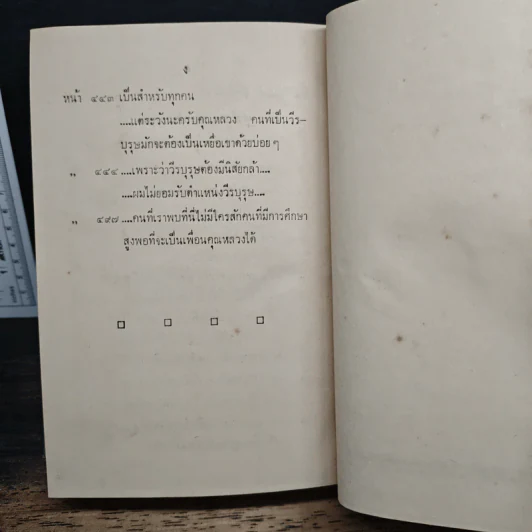 ง
หน้า ๔๔๓ เป็นสำหรับทุกคน
....แต่ระวังนะครับคุณหลวง คนที่เป็นวีร–
บุรุษมักจะต้องเป็นเหยื่อเขาด้วยบ่อย ๆ
,, ๔๔๔ ....เพราะว่าวีรบุรุษต้องมีนิสัยกล้า....
....ผมไม่ยอมรับตำแหน่งวีรบุรุษ....
,, ๔๙๗ ....คนที่เราพบที่นี่ไม่มีใครสักคนที่มีการศึกษา
สูงพอที่จะเป็นเพื่อนคุณหลวงได้